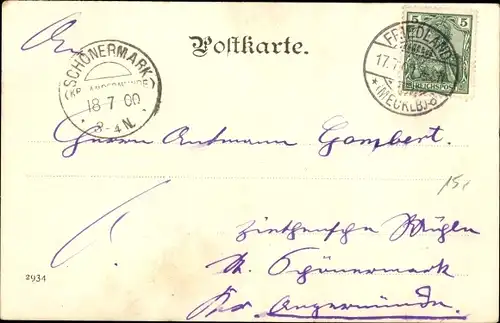 An
Postkarte.
5 5
REICHSPOST
FRIEDLAND
17.7
*(MECKLB)*
SCHÖNERMARK
(KR. ANGERMÜNDE)
18 7 00
3-4N.
Herrn Amtmann Gombert.
15.
Ziethensche Mühle
Schönermark
Kr. Angermünde.
2934